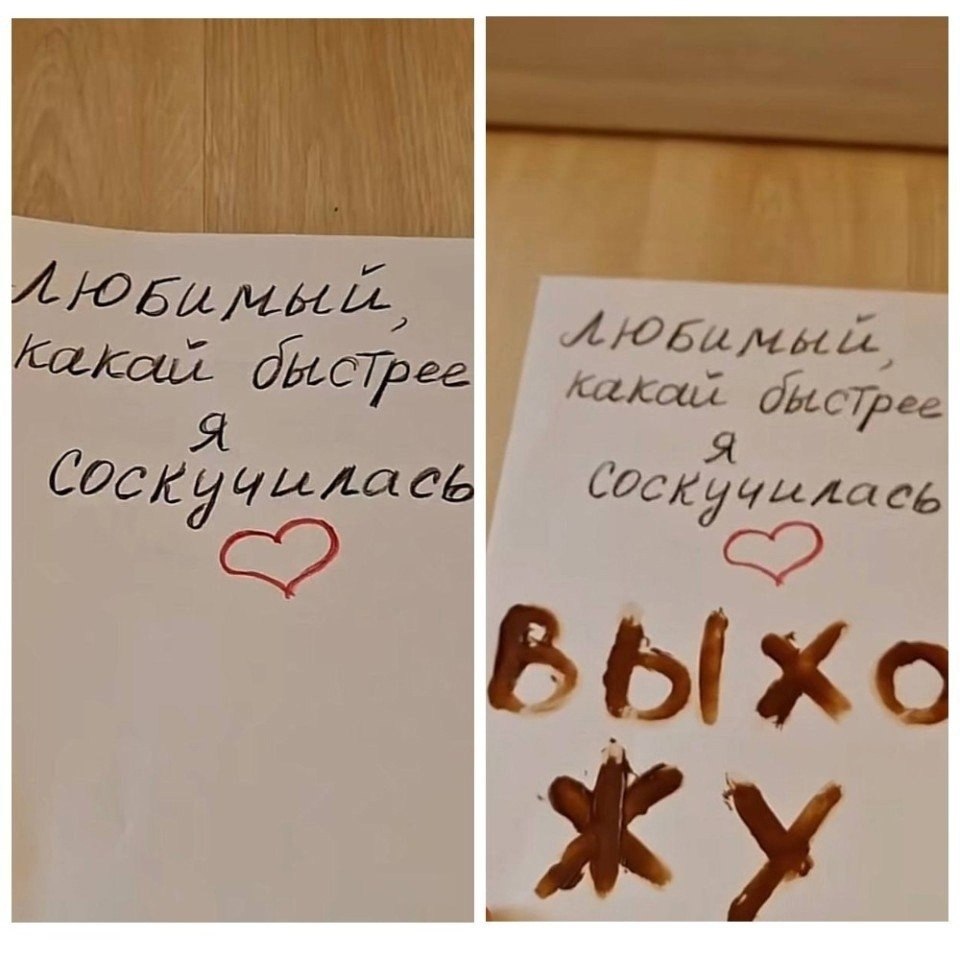 Любимый,
какай быстрее
я
соскучилась
Любимый,
какай быстрее
я
соскучилась
ВЫХО
ЖУ